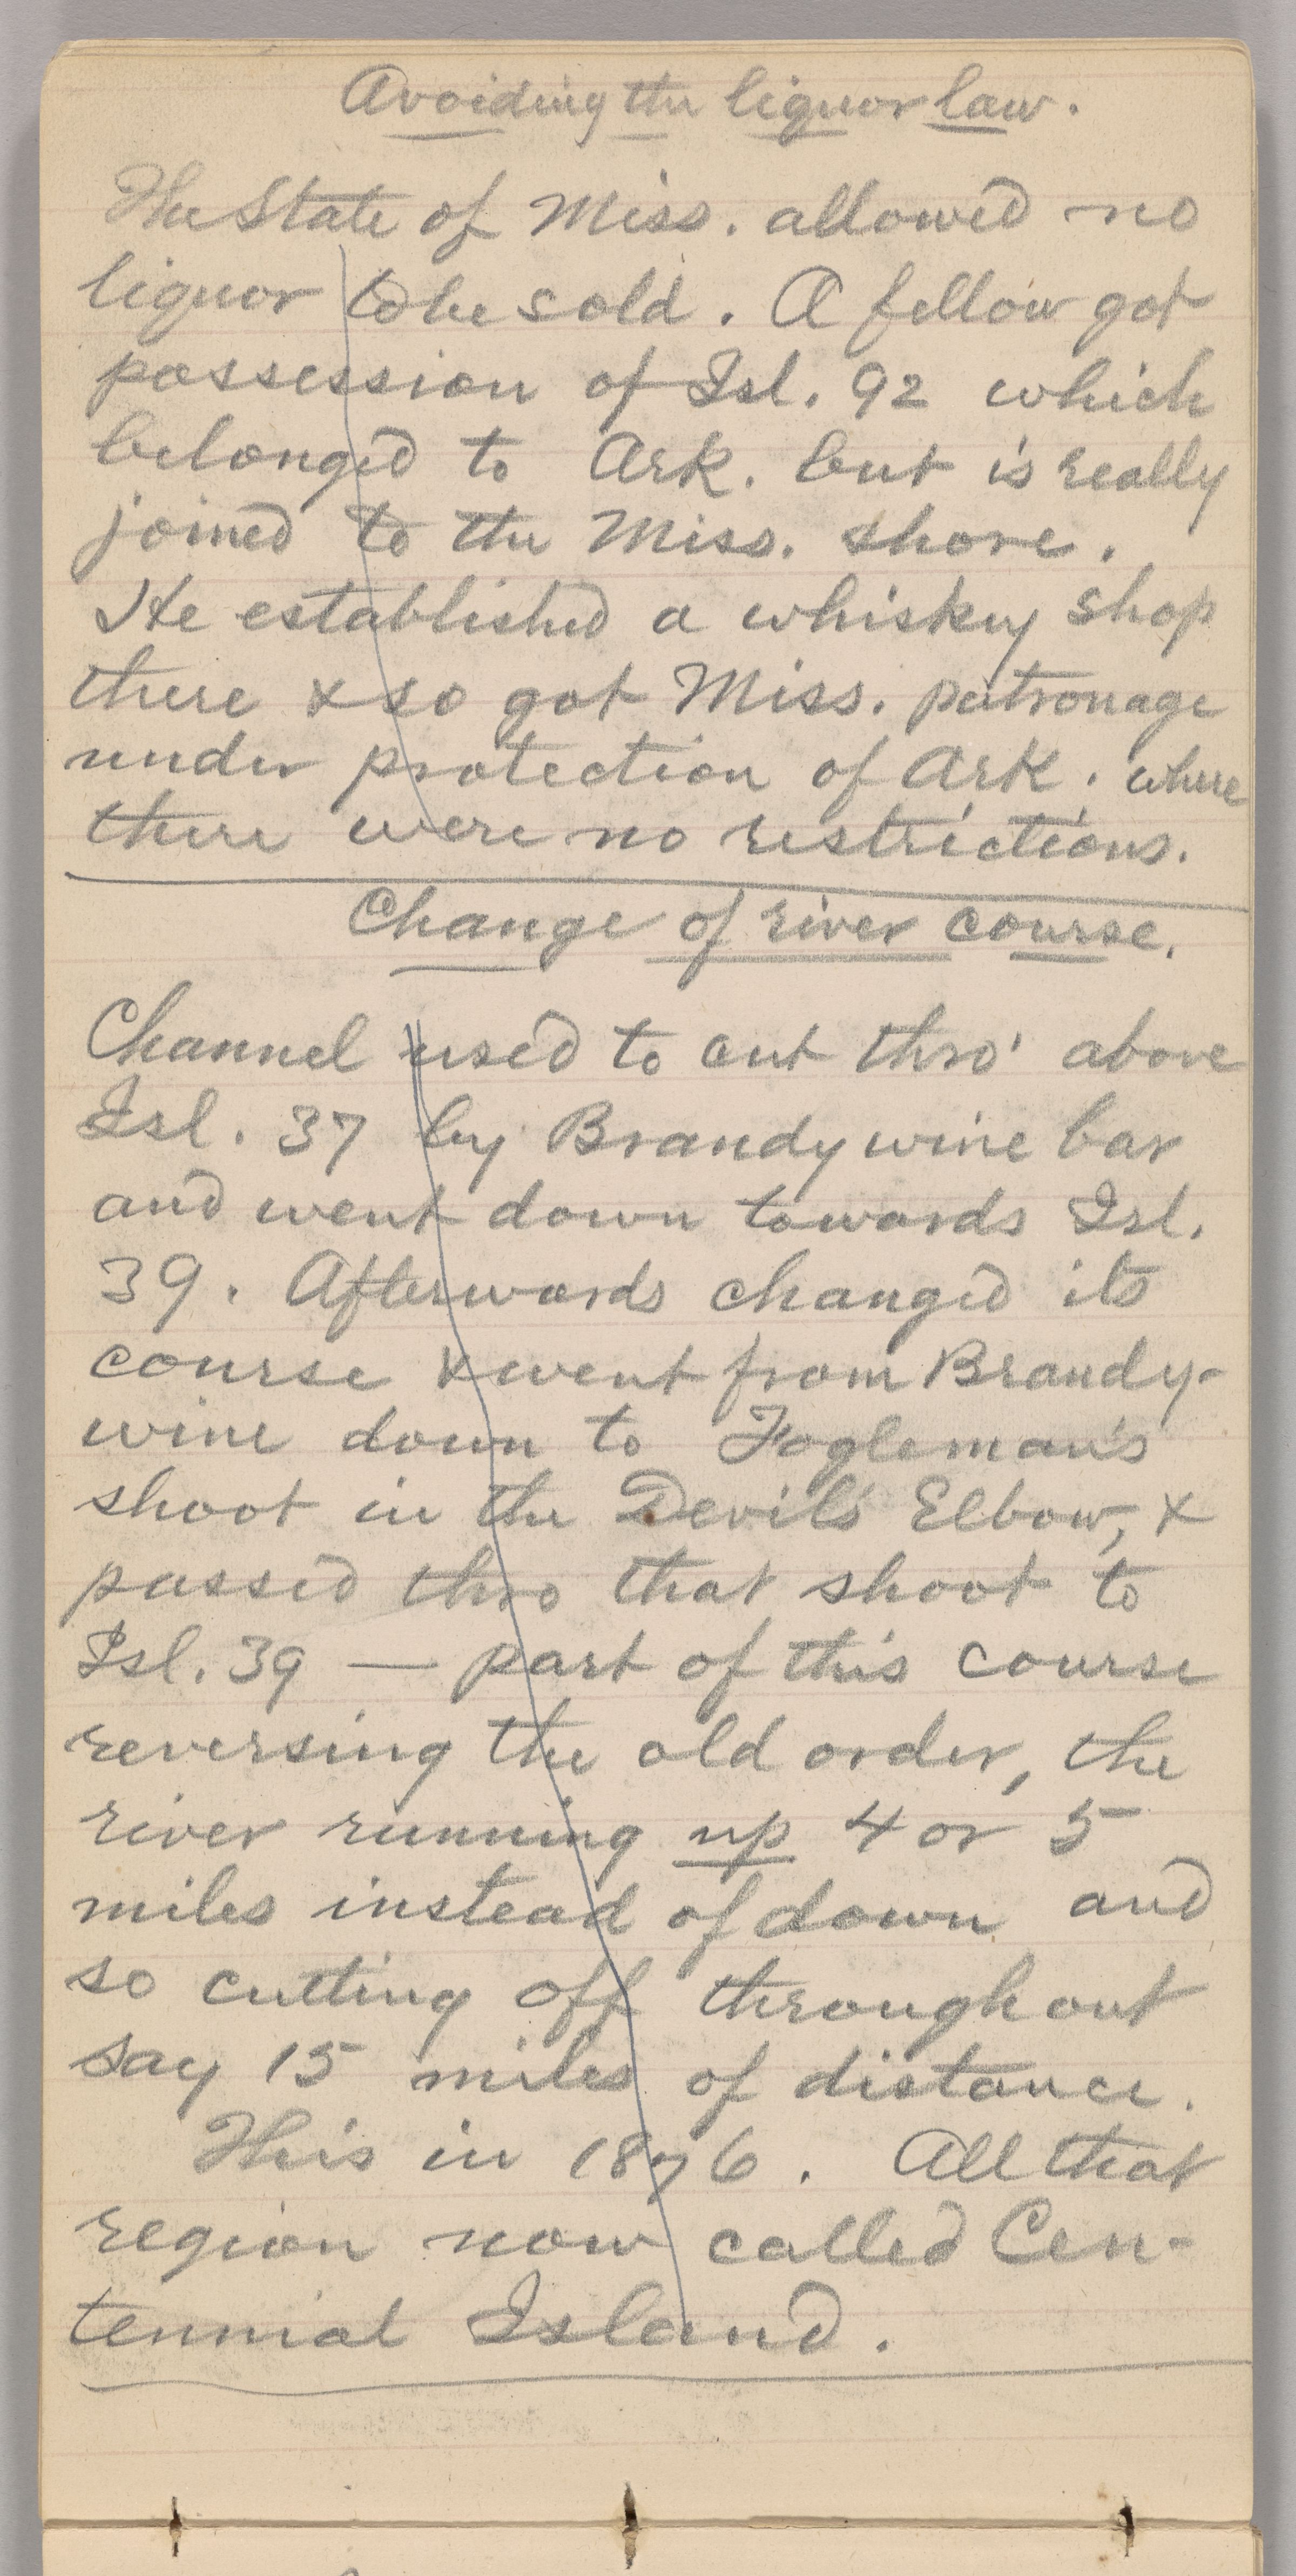 Avoiding the liquor law.
The State of Miss. allowed no
liquor to be sold. A fellow got
possession of Isl. 92 which
belonged to Ark. but is really
joined to the Miss. shore.
He established a whiskey shop
there & so got Miss. patronage
under protection of Ark. where
there were no restrictions.
Change of river course.
Channel used to cut thro' above
Isl. 37 by Brandywine bar
and went down towards Isl.
39. Afterwards changed its
course & went from Brandy-
wine down to Fogleman's
shoot in the Devil's Elbow, &
passed thro that shoot to
Isl. 39 — part of this course
reversing the old order, the
river running up 4 or 5
miles instead of down and
so cutting off throughout
say 15 miles of distance.
This in 1876. All that
region now called Cen-
tennial Island.